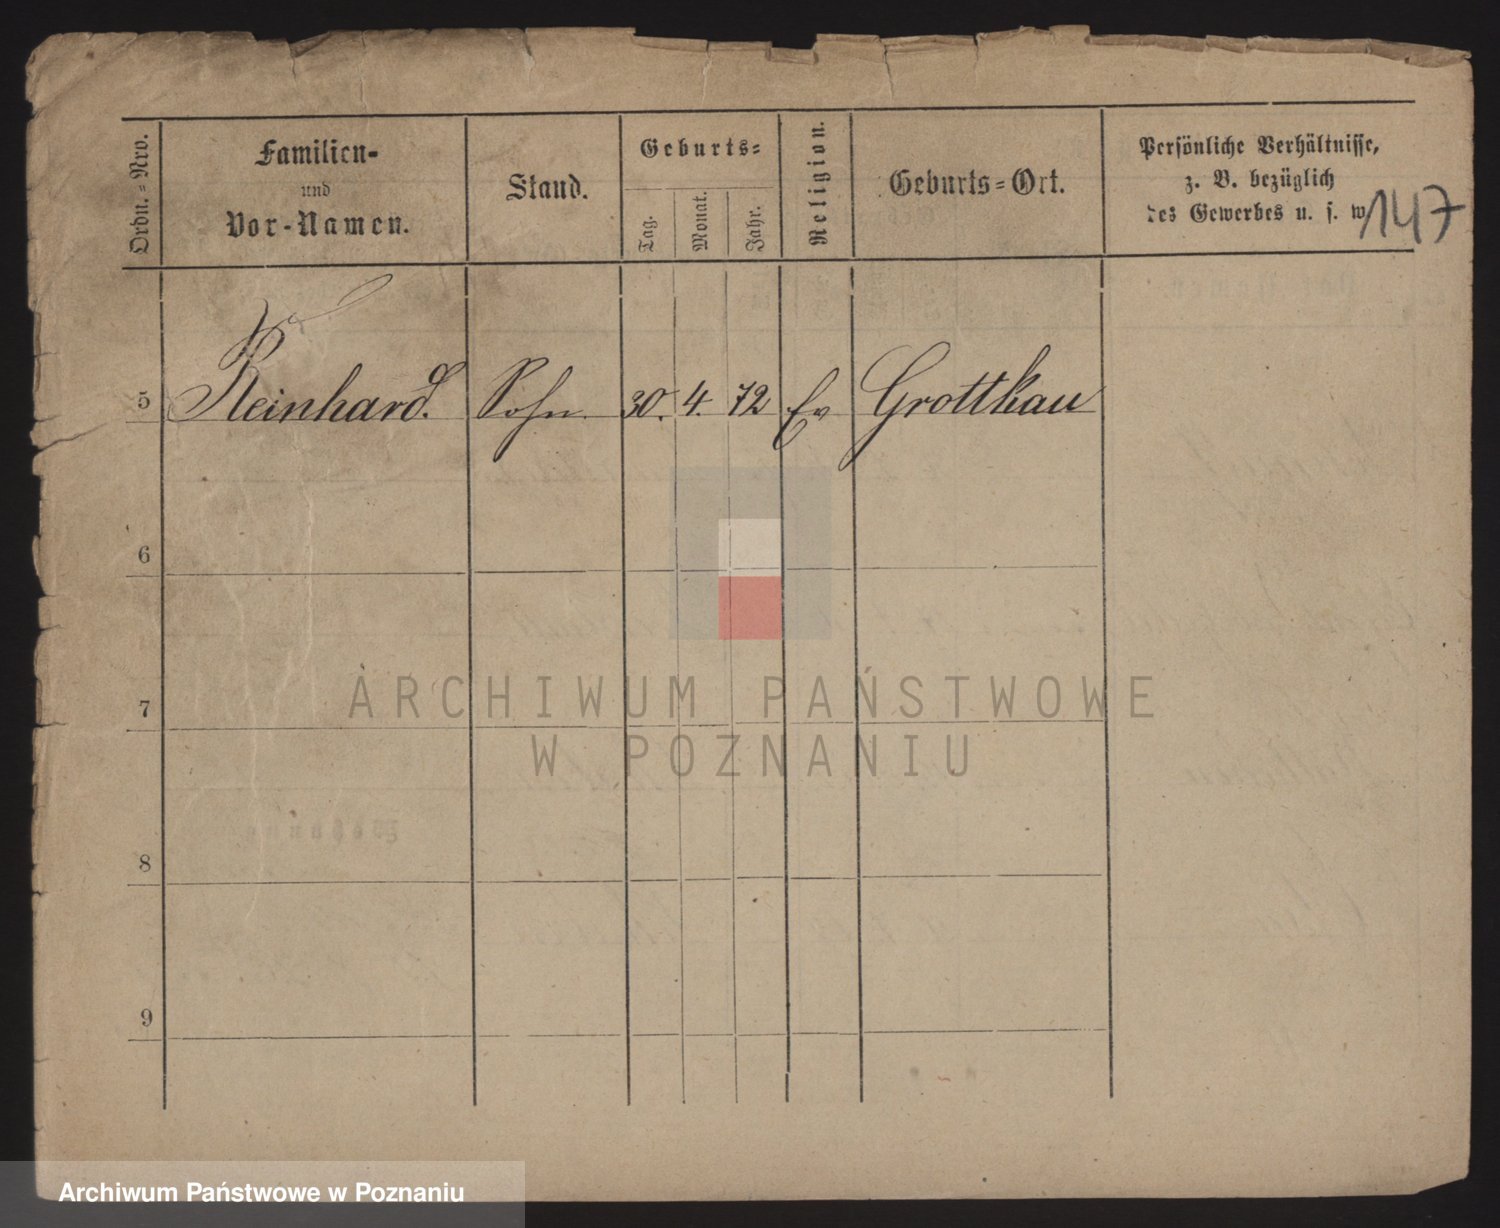 Ordn.-Nro.
Familien-
und
Vor-Namen.
Stand.
Geburts-
Tag.
Monat.
Jahr.
Religion.
Geburts-Ort.
Persönliche Verhältnisse,
z. B. bezüglich
des Gewerbes u. s. w
147
5 Reinhard. Sohn. 30. 4. 72 Ev Grottkau
6
7
8
9
ARCHIWUM PAŃSTWOWE
W POZNANIU
Archiwum Państwowe w Poznaniu